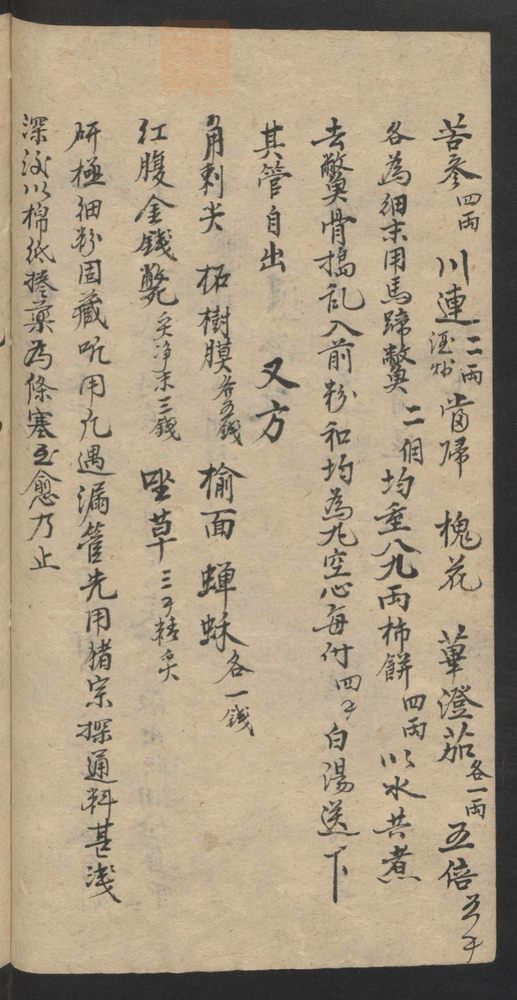 苦參四兩 川連二兩酒炒 當歸 槐花 蓽澄茄各一兩 五倍
各為細末用馬蹄鱉二個均重八九兩柿餅四兩以水共煮
去鱉骨搗亂入前粉和均為丸空心每付四子白湯送下
其管自出 又方
角刺尖 柘樹膜 榆面 蟬蛻各一錢
紅腹金錢鱉炙淨末三錢 草三
研極細粉固藏听用凡遇漏管先用猪宗探通料甚淺
深後以棉纸捲藥為條塞至愈乃止